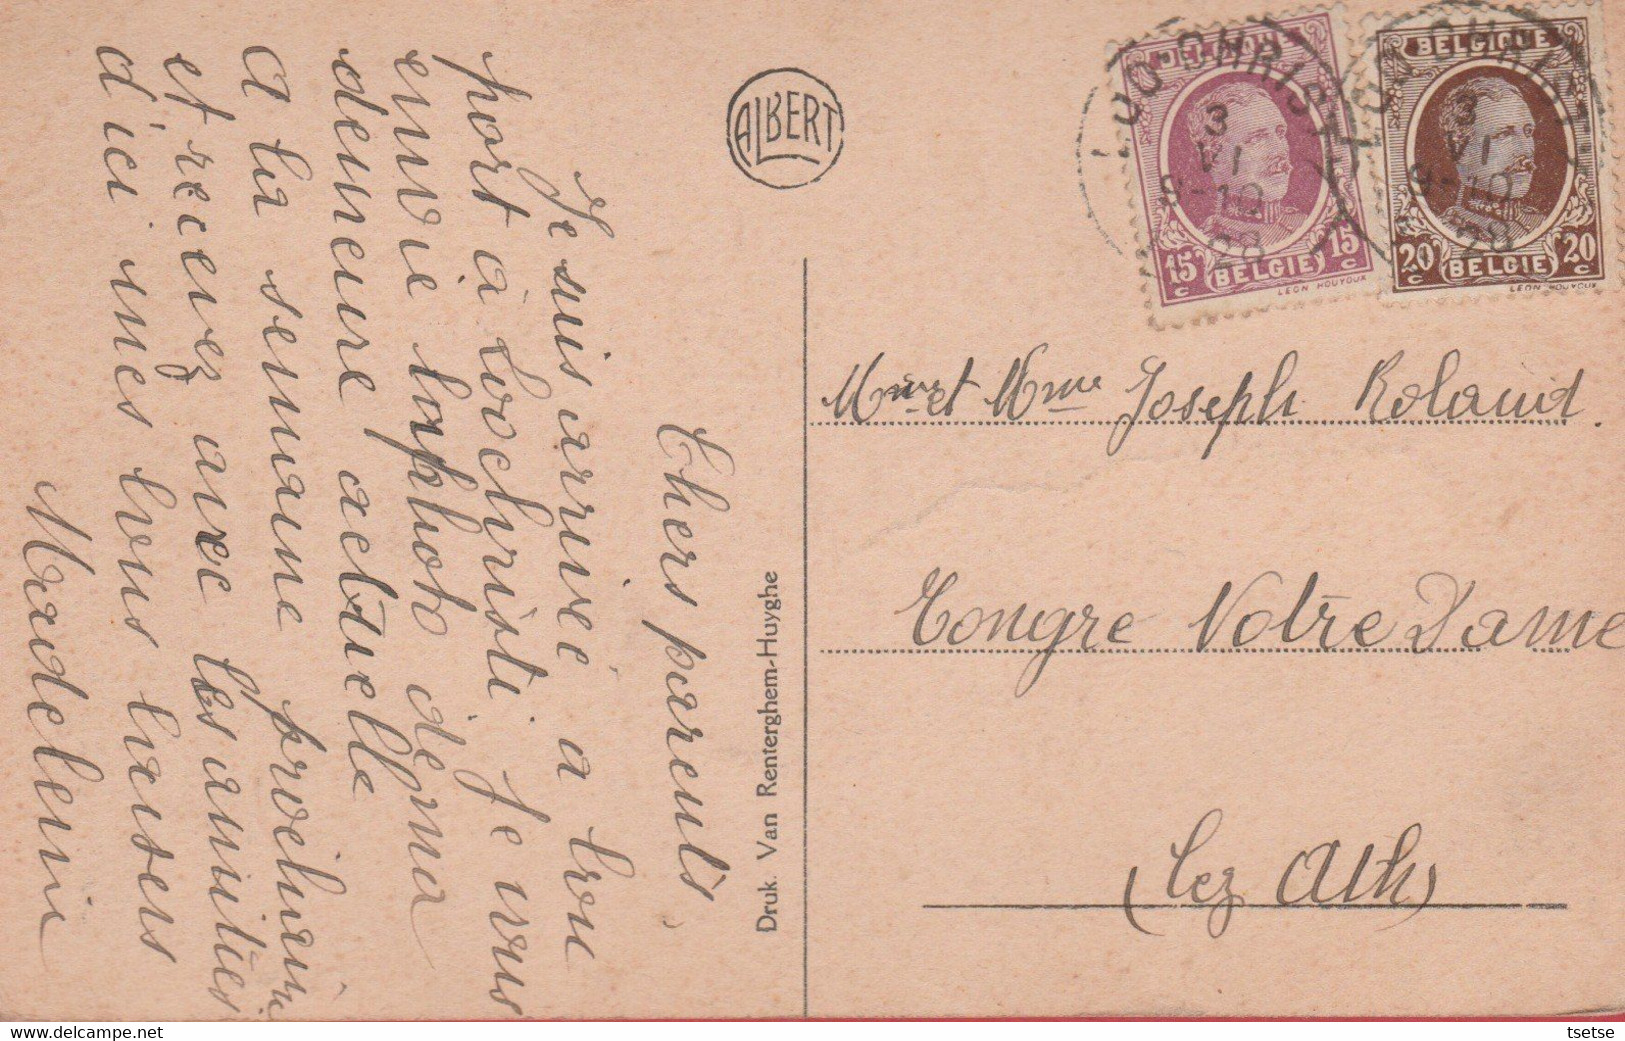 Chers parents,
Je suis arrivé à bon
port à Lochristi. Je vous
envie la photo de ma
demeure actuelle
A la semaine prochaine
et recevez avec les amitiés
d'ici mes bons baisers
Madeleine
ALBERT
Druk. Van Renterghem-Huyghe
BELGIQUE
15 c 15 c
BELGIE
LEON HOUYOUX
BELGIQUE
20 c 20 c
BELGIE
LEON HOUYOUX
LOO-CHRISTI
3
VI
9-10
28
LOO-CHRISTI
3
VI
9-10
28
Mr et Mme Joseph Roland.
Tongre Notre Dame
(lez Ath)
tsetse